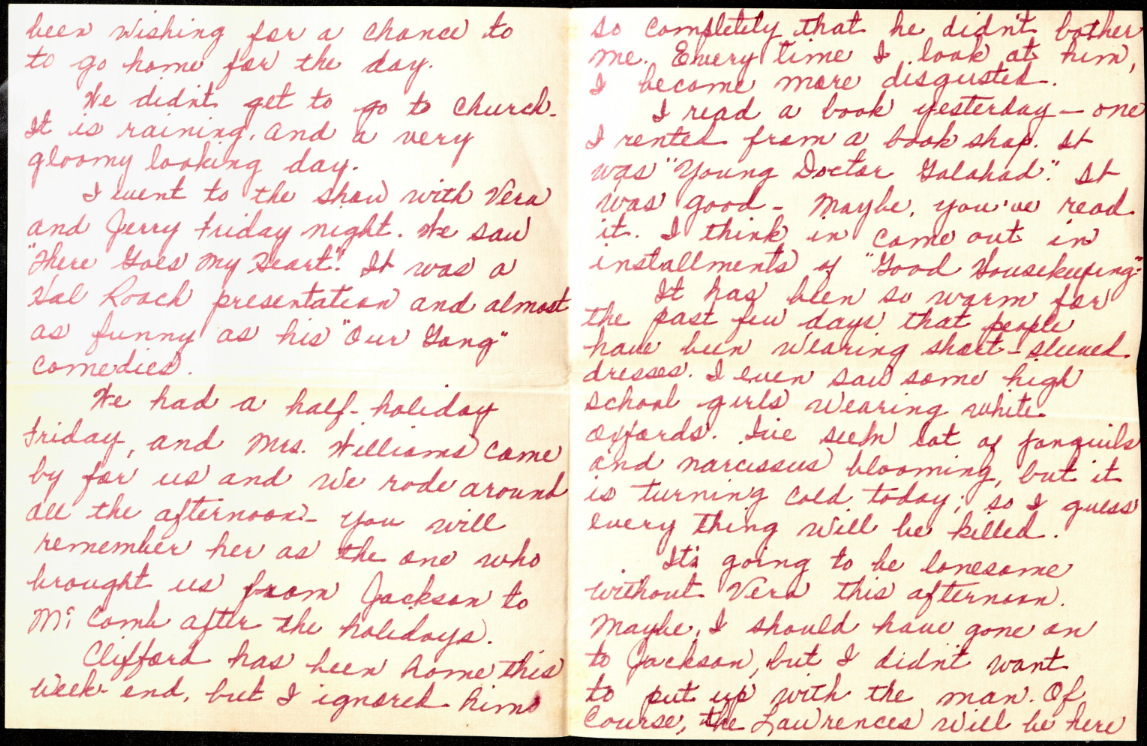 been wishing for a chance to
to go home for the day.
We didn't get to go to church.
It is raining, and a very
gloomy looking day.
I went to the show with Vera
and Jerry Friday night. We saw
"There Goes My Heart." It was a
Hal Roach presentation and almost
as funny as his "Our Gang"
comedies.
We had a half-holiday
Friday, and Mrs. Williams came
by for us and we rode around
all the afternoon - You will
remember her as the one who
brought us from Jackson to
Mc Comb after the holidays.
Clifford has been home this
week end, but I ignored him
so completely that he didn't bother
me. Every time I look at him,
I become more disgusted.
I read a book yesterday - one
I rented from a book shop. It
was "Young Doctor Galahad". It
was good - Maybe, you've read
it. I think in came out in
installments of "Good Housekeeping"
It has been so warm for
the past few days that people
have been wearing short-sleeved
dresses. I even saw some high
school girls wearing white
oxfords. I've seen lot of jonquils
and narcissus blooming, but it
is turning cold today; so I guess
every thing will be killed.
It's going to be lonesome
without Vera this afternoon.
Maybe, I should have gone on
to Jackson, but I didn't want
to put up with the man. Of
course, the Lawrences will be here